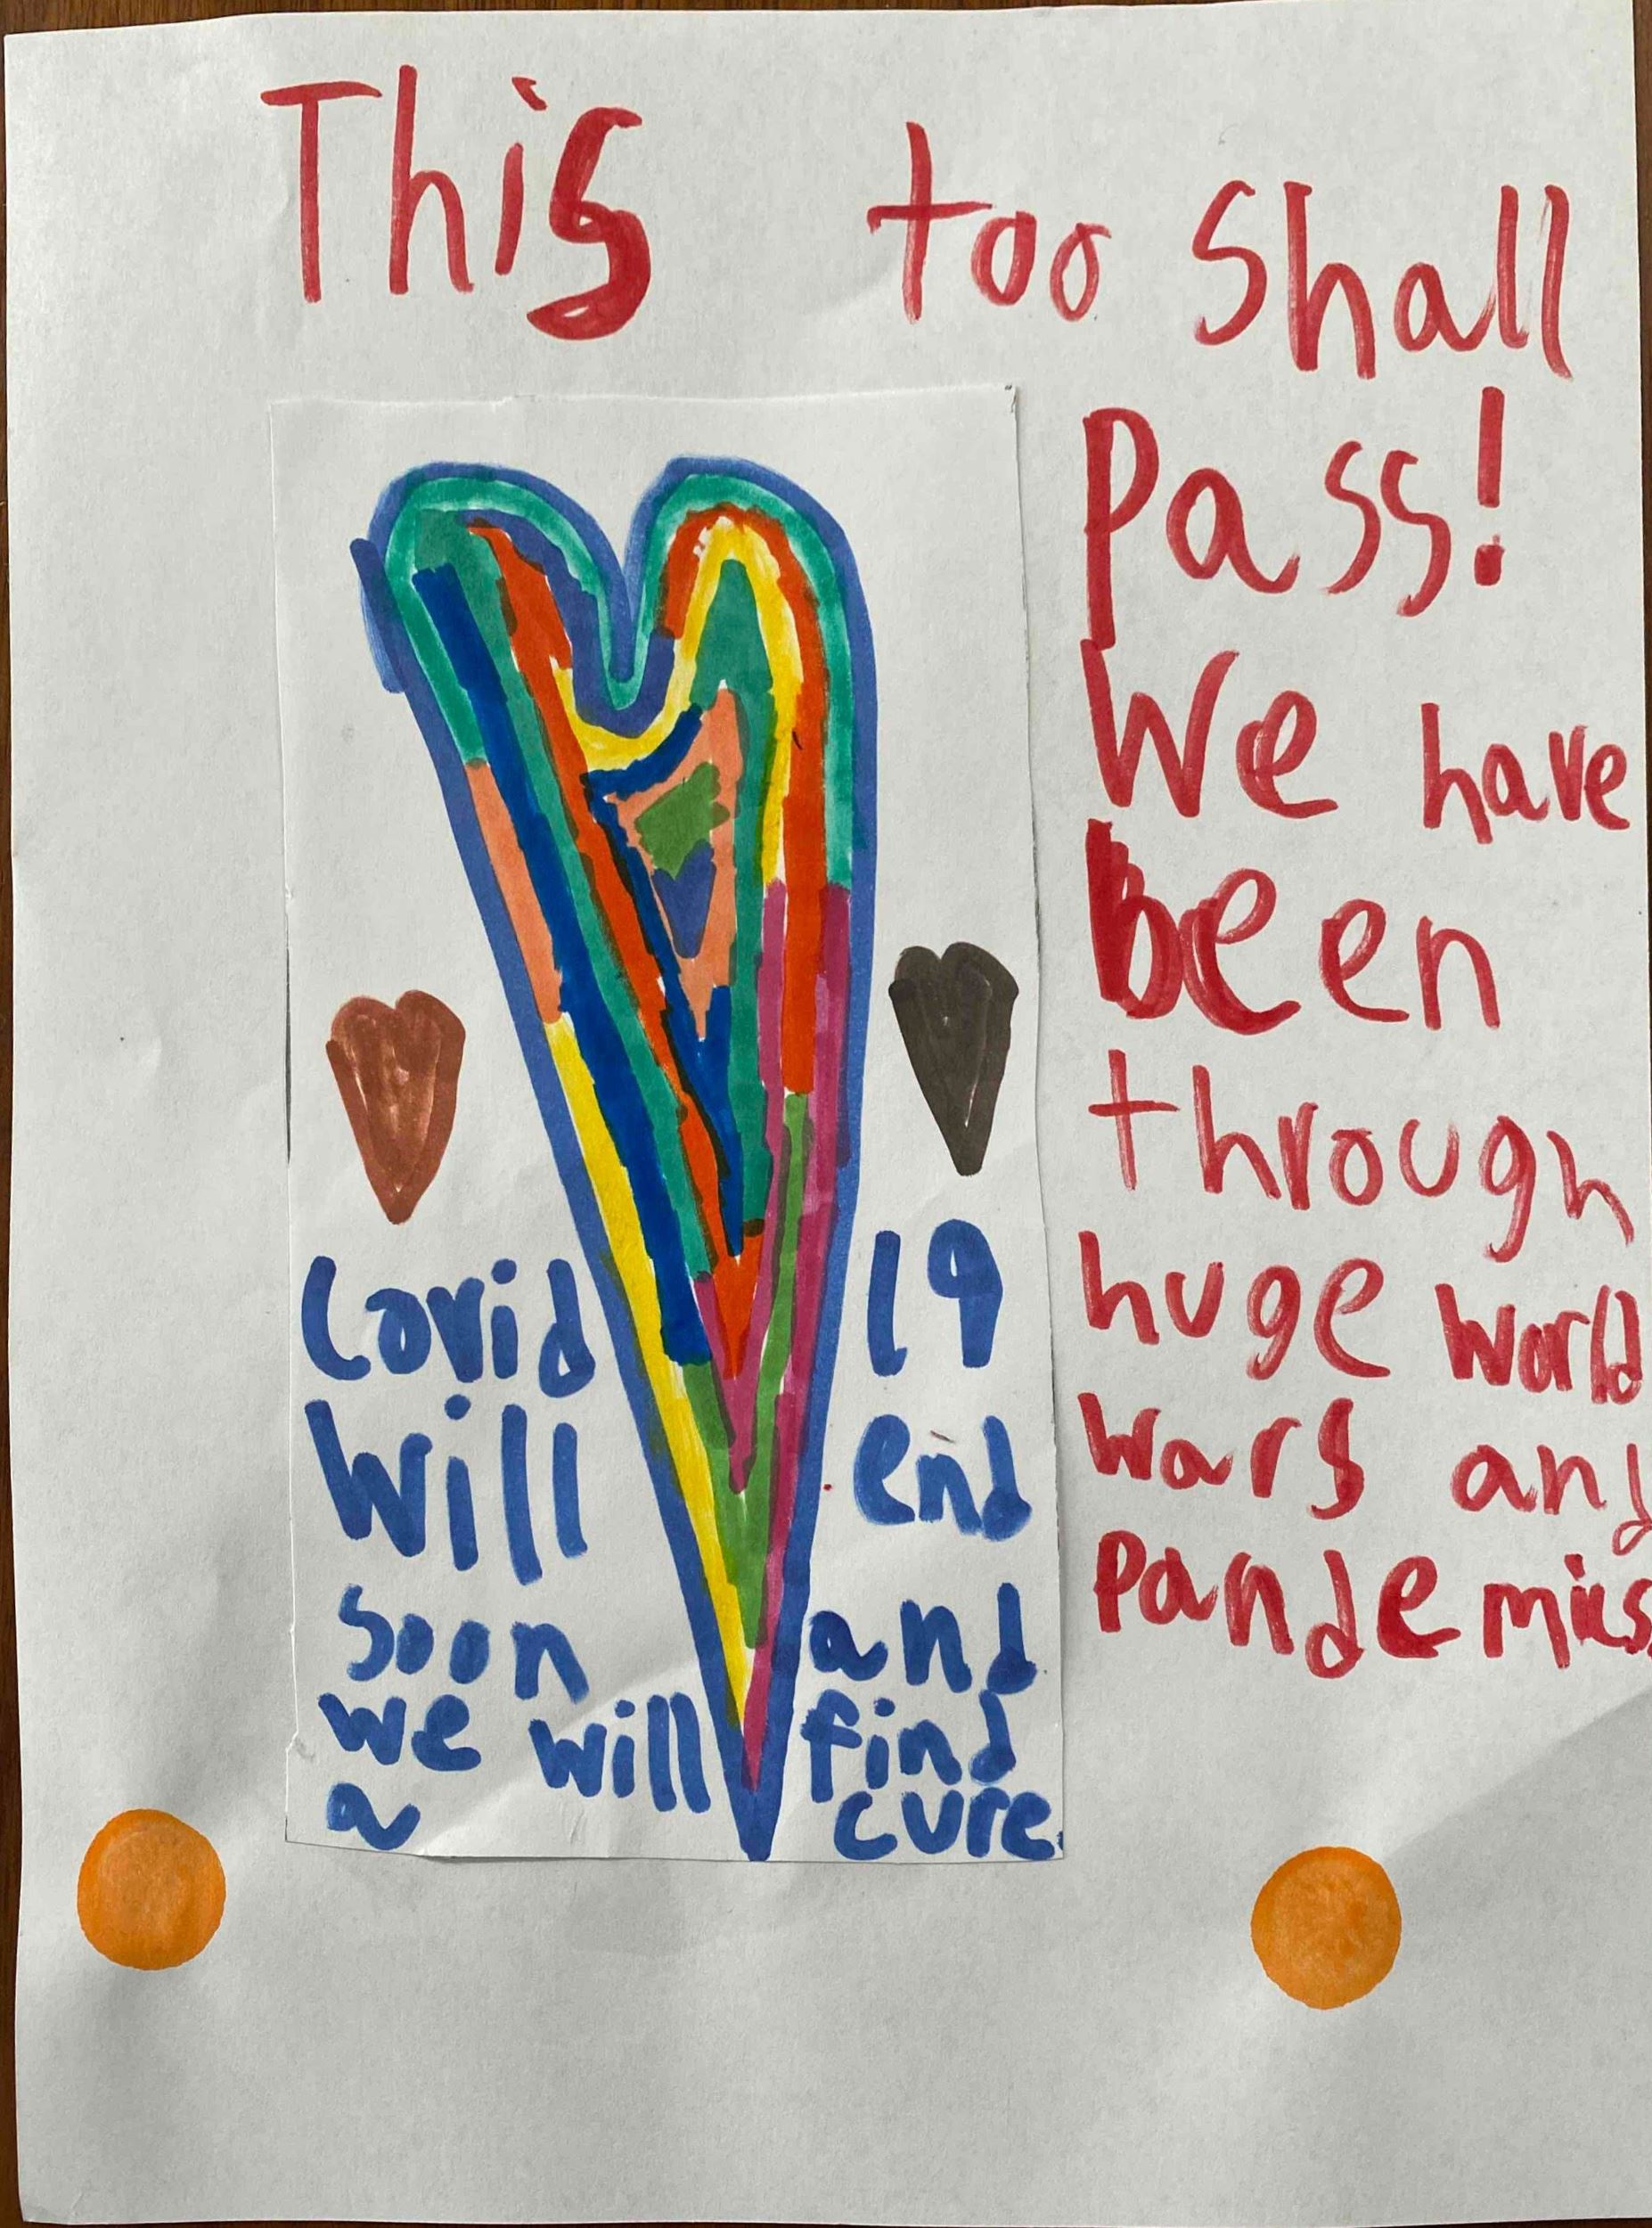 This too Shall
Pass!
We have
Been
through
huge World
Wars and
Pandemics.
Covid 19
Will end
Soon and
we will find
a cure.